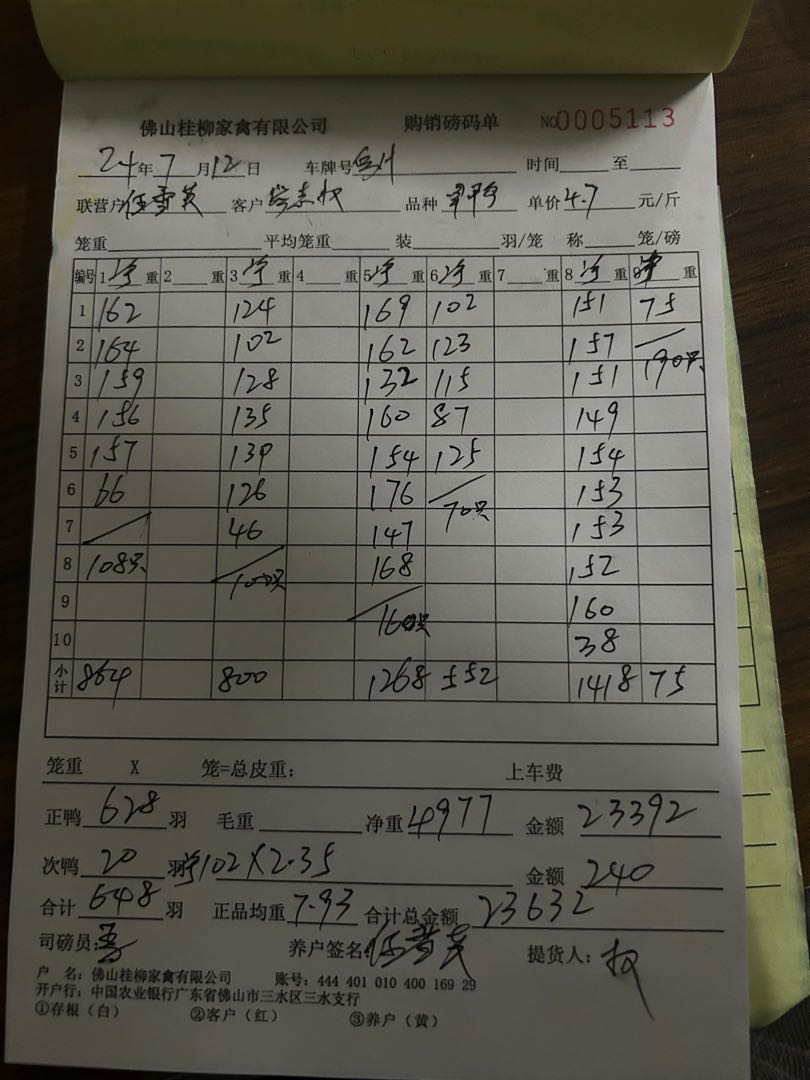 佛山桂柳家禽有限公司 购销磅码单 NO0005113
24年7月12日 车牌号 时间 至
联营户伍雪英 客户 品种 单价4.7元/斤
笼重 平均笼重 装 羽/笼 称 笼/磅
编号 1净重 2重 3净重 4重 5净重 6净重 7重 8净重 重
1 162 124 169 102 151 75
2 164 102 162 123 157
3 159 128 132 115 151 190只
4 156 135 160 87 149
5 157 139 154 125 154
6 66 126 176 153
7 46 147 70只 153
8 108只 100只 168 152
9 160只 160
10 38
小计 864 800 1268 552 1418 75
笼重 X 笼=总皮重: 上车费
正鸭628羽 毛重 净重4977 金额23392
次鸭20羽 102X2.35 金额240
合计648羽 正品均重7.93 合计总金额23632
司磅员: 养户签名: 提货人:权
户 名:佛山桂柳家禽有限公司 账号:444 401 010 400 169 29
开户行:中国农业银行广东省佛山市三水区三水支行
①存根(白) ②客户(红) ③养户(黄)